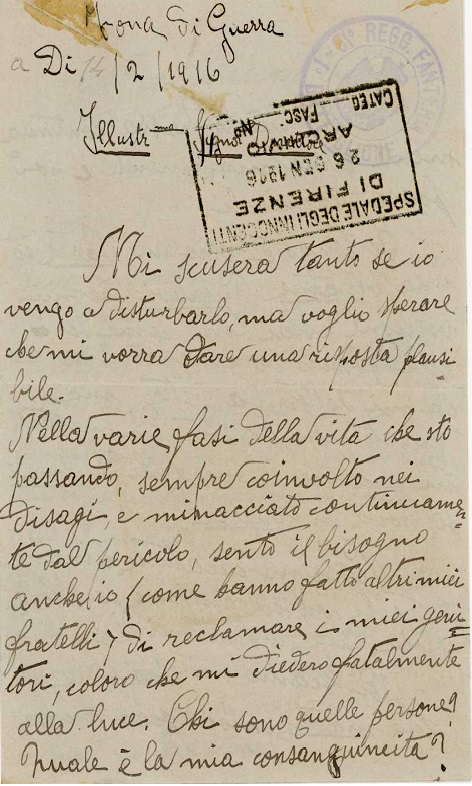 Zona di Guerra
a Di 14/2/1916
Illustr.mo Signor Direttore
SPEDALE DEGLI INNOCENTI
DI FIRENZE
26 GEN 1916
ARCHIVIO
CATEG FASC. No
REGG. FANT
Mi scuserà tanto se io
vengo a disturbarlo, ma voglio sperare
che mi vorrà dare una risposta plausi
bile.
Nella varie fasi della vita che sto
passando, sempre coinvolto nei
disagi, e minacciato continuamen=
te dal pericolo, sento il bisogno
anch'io (come hanno fatto altri miei
fratelli) di reclamare i miei geni=
tori, coloro che mi diedero fatalmente
alla luce. Chi sono quelle persone?
Quale è la mia consanguineità?